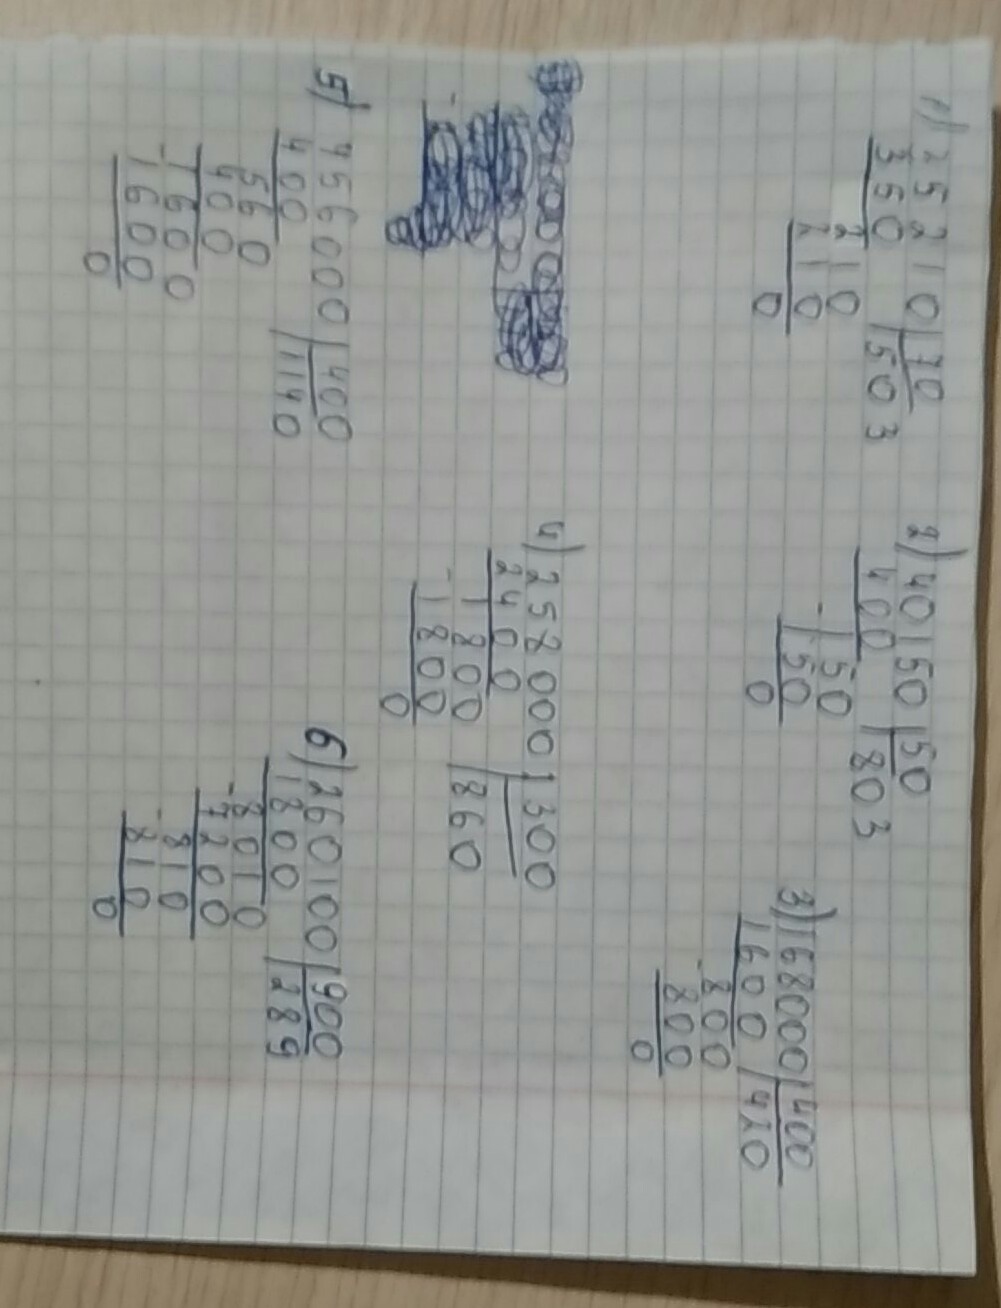 1) 35210|70
350 |503
210
210
0
2) 40150|50
400 |803
-150
150
0
3) 168000|400
1600 |420
-800
800
0
4) 258000|300
2400 |860
-1800
1800
0
5) 456000|400
400 |1140
560
400
-1600
1600
0
6) 260100|900
1800 |289
-8010
7200
-810
810
0